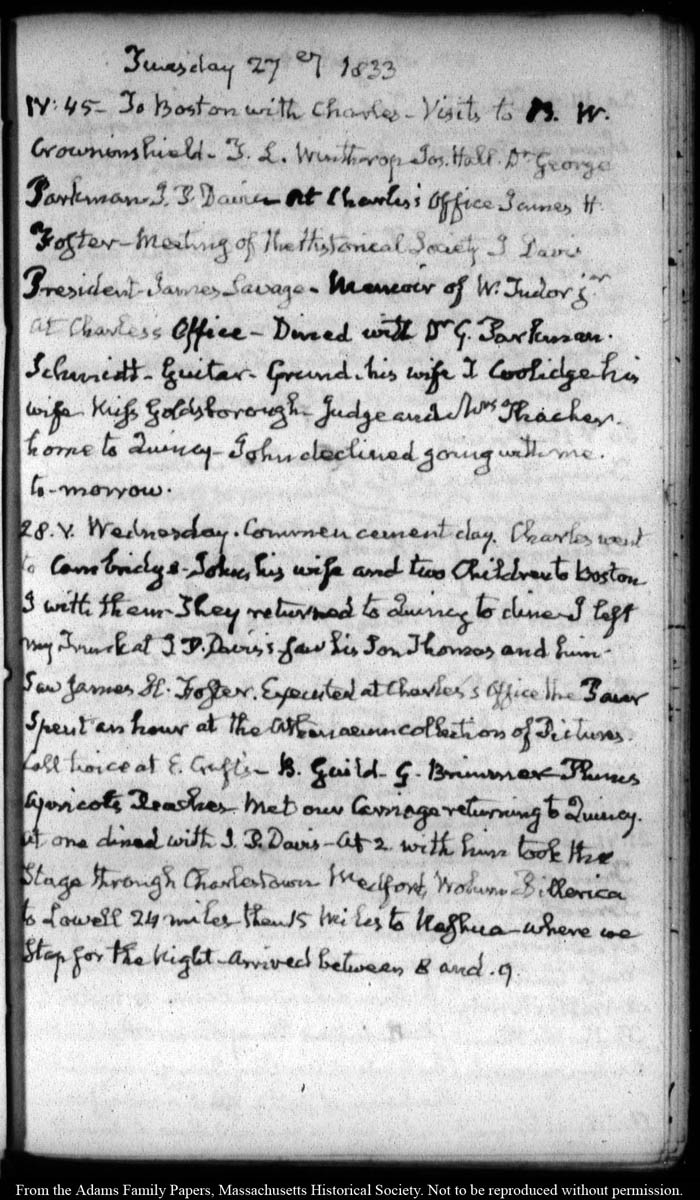 Tuesday 27 1833
IV: 45 - To Boston with Charles - Visits to B. W.
Crowninshield - T. L. Winthrop Jos. Hall. Dr George
Parkman. I. P. Davis - At Charles's Office James H.
Foster - Meeting of the Historical Society J Davis
President James Savage - Memoir of W. Tudor jr
At Charles's Office - Dined with Dr G. Parkman.
Schmidt - Guitar - Grund, his wife T Coolidge his
wife Miss Goldsborough - Judge and Mrs Thacher.
home to Quincy - John declined going with me.
to-morrow.
28. V. Wednesday. Commencement day. Charles went
to Cambridge - John, his wife and two Children to Boston
I with them - They returned to Quincy to dine I left
my Trunk at I. P. Davis's saw his Son Thomas and him -
Saw James H. Foster. Executed at Charles's Office the
Spent an hour at the Athenaeum collection of Pictures.
Call twice at E. Crafts - B. Guild - G. Brimmer Plums
Apricots Peaches. Met our Carriage returning to Quincy.
at one dined with I. P. Davis - At 2 with him took the
Stage through Charlestown Medford, Woburn Billerica
to Lowell 24 miles then 15 Miles to Nashua - where we
Stop for the Night - Arrived between 8 and 9.
From the Adams Family Papers, Massachusetts Historical Society. Not to be reproduced without permission